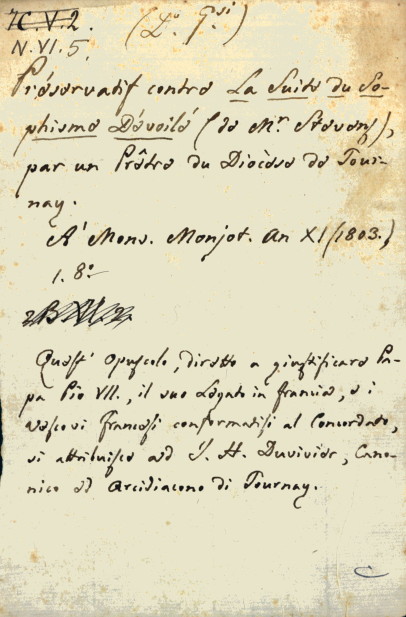 7C.V.2.
N.VI.5. (Do Gsi)
Préservatif contre La Suite du So-
phisme Dévoilé (de Mr Stevens),
par un Prêtre du Diocèse de Tour-
nay.
A' Mons. Monjot. An XI (1803.)
1. 8o
Quest' opuscolo, diretto a giustificare Pa-
pa Pio VII., il suo Legato in francia, e i
vescovi francesi conformatisi al Concordato,
si attribuisce ad J. H. Duvivier, Cano-
nico ed Arcidiacono di Tournay.